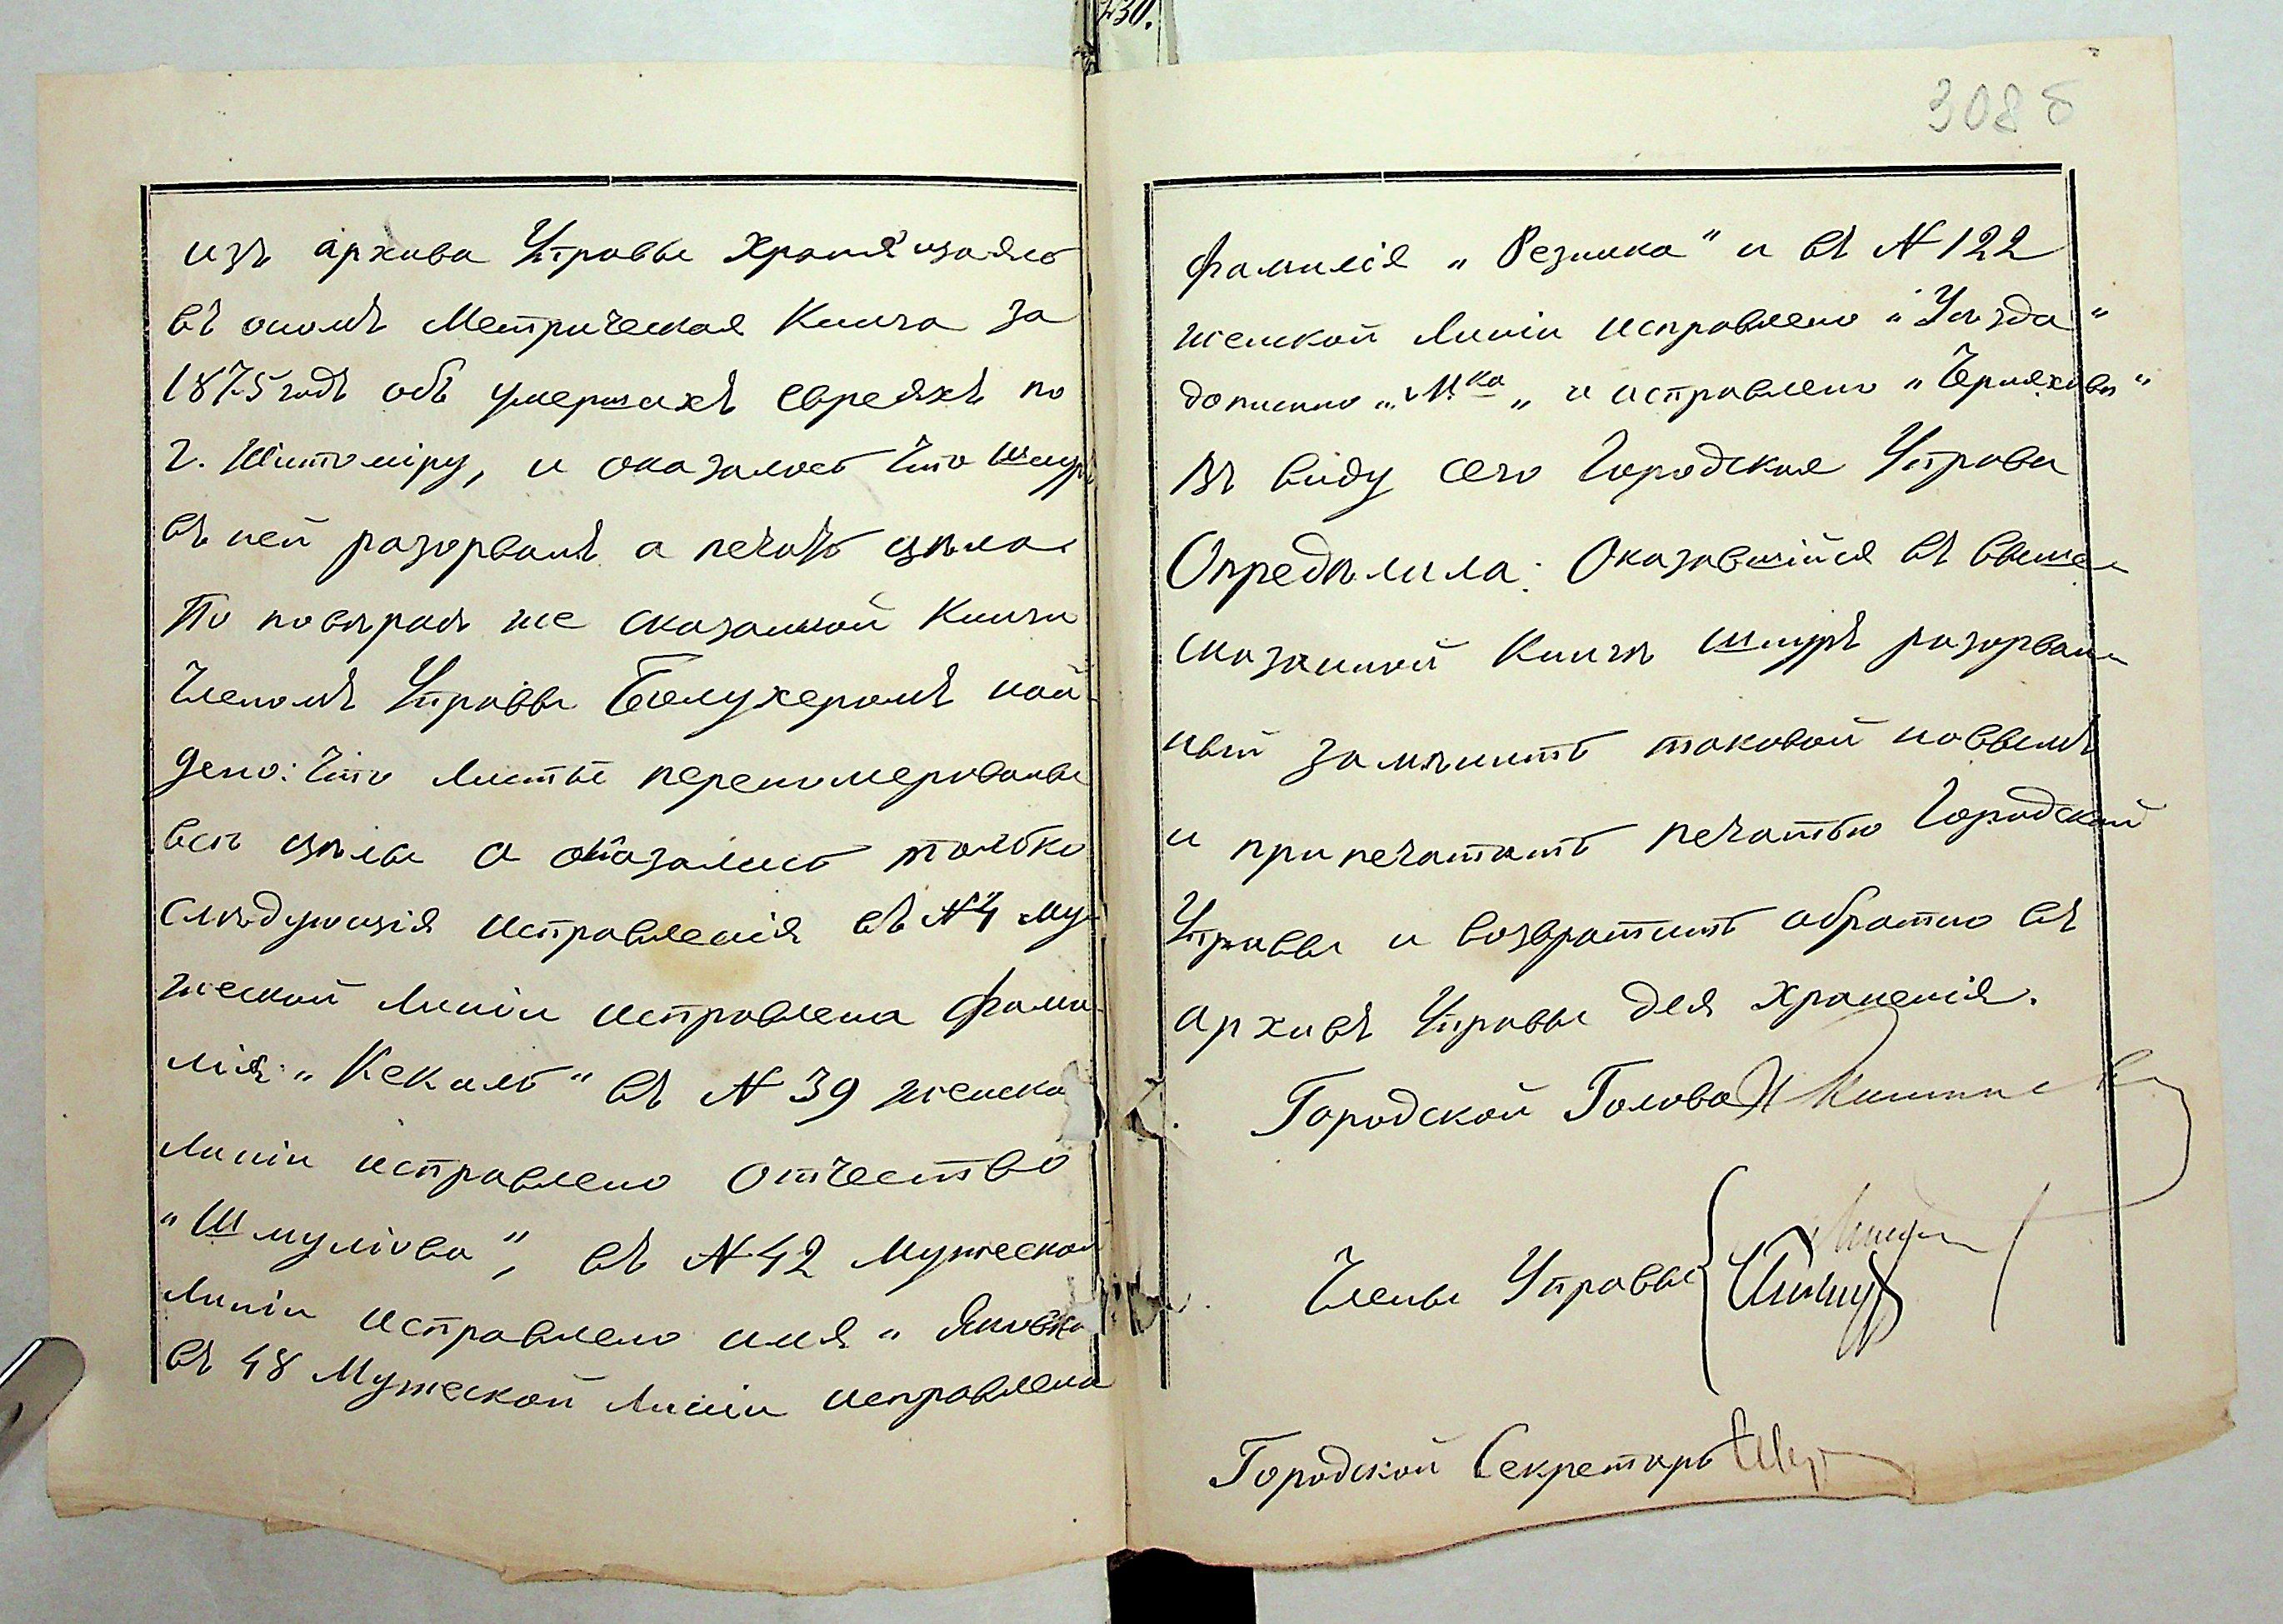 230.
308б
изъ архива Управы Хранящаясь
въ ономъ Метрическая Книга за
1875 годъ объ умершихъ евреяхъ по
г. Житоміру, и оказалось что шнуръ
въ ней разорванъ а печать цѣла.
По повѣркѣ же сказанной Книги
Членомъ Управы най-
дено: что листы перенумерованы
всѣ цѣлы а оказались только
слѣдующія исправленія въ №4 му-
жеской линіи исправлена фами-
лія: „Кекаль“ въ № 39 женской
линіи исправлено отчество
„Шмуліова“, въ № 42 Мужеской
линіи исправлено имя „
въ 48 Мужеской линіи исправлена
фамилія „Резника“ и въ № 122
женской линіи исправлено „Уѣзда“
дописано „М.ка„ и исправлено „Черняхова“
Въ виду сего Городская Управа
Опредѣлила: Оказавшійся въ выше-
сказанной Книгѣ шнуръ разорван-
ный замѣнить таковой новымъ
и припечатать печатью Городской
Управы и возвратить обратно въ
архивъ Управы для храненія.
Городской Голова
Члены Управы
Городской Секретарь